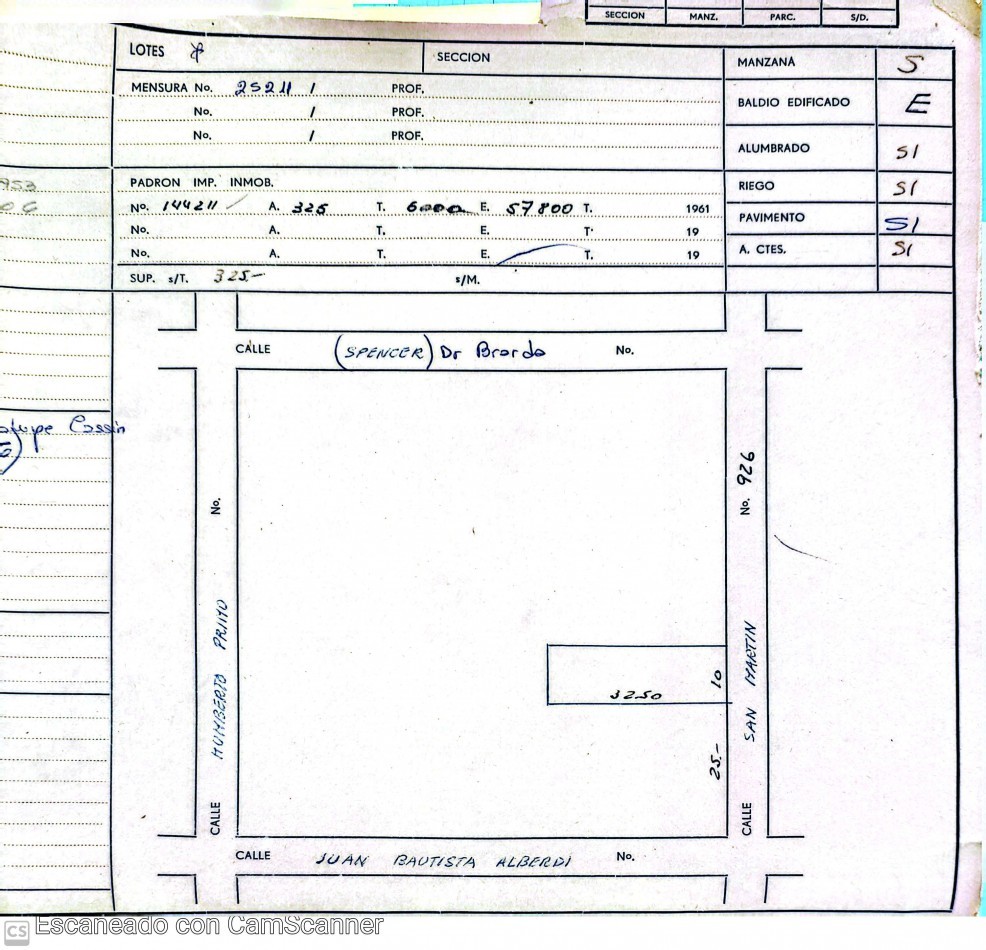 SECCION MANZ. PARC. S/D.
LOTES
SECCION
MANZANA S
MENSURA No. 25211 / PROF.
No. / PROF.
No. / PROF.
BALDIO EDIFICADO E
ALUMBRADO SI
RIEGO SI
PAVIMENTO SI
A. CTES. SI
PADRON IMP. INMOB.
No. 144211 A. 325 T. 6000 E. 57800 T. 1961
No. A. T. E. T. 19
No. A. T. E. T. 19
SUP. s/T. 325.- s/M.
953
CALLE (SPENCER) Dr No.
Cassin
CALLE HUMBERTO PRIMO No.
CALLE SAN MARTIN No. 926
32.50
10
25.-
CALLE JUAN BAUTISTA ALBERDI No.
CS Escaneado con CamScanner